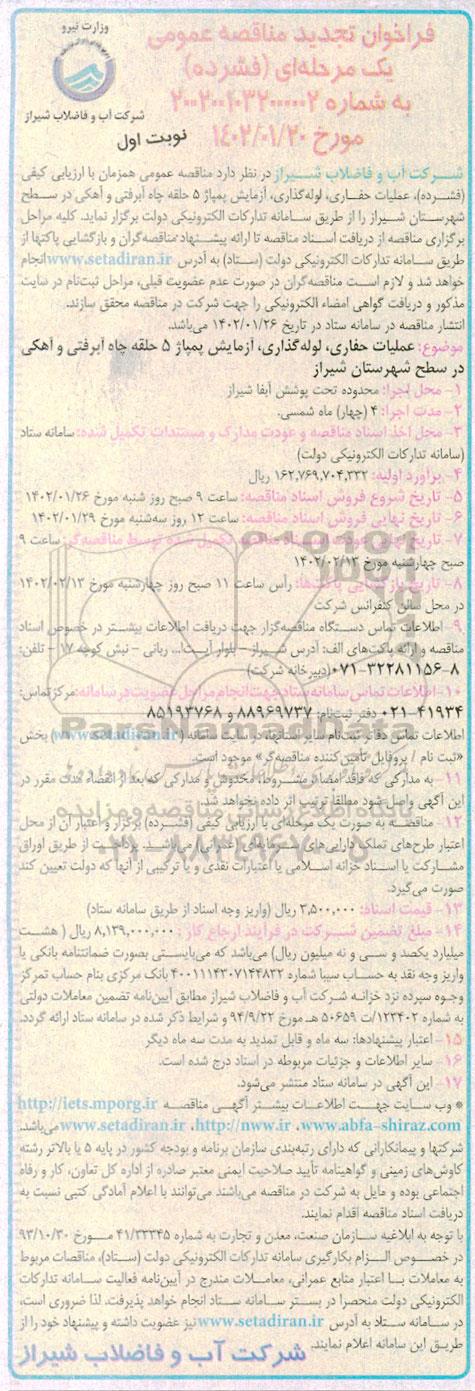 وزارت نیرو
شرکت آب و فاضلاب شیراز
فراخوان تجدید مناقصه عمومی
یک مرحله‌ای (فشرده)
به شماره ۲۰۰۲۰۰۱۰۳۲۰۰۰۰۰۲
مورخ ۱۴۰۲/۰۱/۲۰
نوبت اول
شرکت آب و فاضلاب شیراز در نظر دارد مناقصه عمومی همزمان با ارزیابی کیفی
(فشرده)، عملیات حفاری، لوله‌گذاری، آزمایش پمپاژ ۵ حلقه چاه آبرفتی و آهکی در سطح
شهرستان شیراز را از طریق سامانه تدارکات الکترونیکی دولت برگزار نماید. کلیه مراحل
برگزاری مناقصه از دریافت اسناد مناقصه تا ارائه پیشنهاد مناقصه‌گران و بازگشایی پاکتها از
طریق سامانه تدارکات الکترونیکی دولت (ستاد) به آدرس www.setadiran.ir انجام
خواهد شد و لازم است مناقصه‌گران در صورت عدم عضویت قبلی، مراحل ثبت‌نام در سایت
مذکور و دریافت گواهی امضاء الکترونیکی را جهت شرکت در مناقصه محقق سازند.
انتشار مناقصه در سامانه ستاد در تاریخ ۱۴۰۲/۰۱/۲۶ می‌باشد.
موضوع: عملیات حفاری، لوله‌گذاری، آزمایش پمپاژ ۵ حلقه چاه آبرفتی و آهکی
در سطح شهرستان شیراز
۱- محل اجرا: محدوده تحت پوشش آبفا شیراز
۲- مدت اجرا: ۴ (چهار) ماه شمسی.
۳- محل اخذ اسناد مناقصه و عودت مدارک و مستندات تکمیل شده: سامانه ستاد
(سامانه تدارکات الکترونیکی دولت)
۴- برآورد اولیه: ۱۶۲,۷۶۹,۷۰۴,۳۳۲ ریال
۵- تاریخ شروع فروش اسناد مناقصه: ساعت ۹ صبح روز شنبه مورخ ۱۴۰۲/۰۱/۲۶
۶- تاریخ نهایی فروش اسناد مناقصه: ساعت ۱۲ روز سه‌شنبه مورخ ۱۴۰۲/۰۱/۲۹
۷- تاریخ نهایی عودت اسناد مناقصه تکمیل شده توسط مناقصه‌گر: ساعت ۹
صبح چهارشنبه مورخ ۱۴۰۲/۰۲/۱۳
۸- تاریخ بازگشایی پاکت‌ها: رأس ساعت ۱۱ صبح روز چهارشنبه مورخ ۱۴۰۲/۰۲/۱۳
در محل سالن کنفرانس شرکت
۹- اطلاعات تماس دستگاه مناقصه‌گزار جهت دریافت اطلاعات بیشتر در خصوص اسناد
مناقصه و ارائه پاکت‌های الف: آدرس شیراز – بلوار آیت‌ا... ربانی – نبش کوچه ۱۷ – تلفن:
۸-۰۷۱-۳۲۲۸۱۱۵۶ (دبیرخانه شرکت)
۱۰- اطلاعات تماس سامانه ستاد جهت انجام مراحل عضویت در سامانه: مرکز تماس:
۰۲۱-۴۱۹۳۴ دفتر ثبت‌نام: ۸۸۹۶۹۷۳۷ و ۸۵۱۹۳۷۶۸
اطلاعات تماس دفاتر ثبت‌نام سایر استانها، در سایت سامانه (www.setadiran.ir) بخش
«ثبت نام / پروفایل تأمین‌کننده مناقصه‌گر» موجود است.
۱۱- به مدارکی که فاقد امضاء، مشروط، مخدوش و مدارکی که بعد از انقضاء مدت مقرر در
این آگهی واصل شود مطلقاً ترتیب اثر داده نخواهد شد.
۱۲- مناقصه به صورت یک مرحله‌ای با ارزیابی کیفی (فشرده) برگزار و اعتبار آن از محل
اعتبار طرح‌های تملک دارایی‌های سرمایه‌ای (عمرانی) می‌باشد. پرداخت از طریق اوراق
مشارکت یا اسناد خزانه اسلامی یا اعتبارات نقدی و یا ترکیبی از آنها که دولت تعیین کند
صورت می‌گیرد.
۱۳- قیمت اسناد: ۳,۵۰۰,۰۰۰ ریال (واریز وجه اسناد از طریق سامانه ستاد)
۱۴- مبلغ تضمین شرکت در فرآیند ارجاع کار: ۸,۱۳۹,۰۰۰,۰۰۰ ریال (هشت
میلیارد یکصد و سی و نه میلیون ریال) می‌باشد که می‌بایستی بصورت ضمانتنامه بانکی یا
واریز وجه نقد به حساب سیبا شماره ۴۰۰۱۱۱۴۳۰۷۱۴۴۸۳۲ بانک مرکزی بنام حساب تمرکز
وجوه سپرده نزد خزانه شرکت آب و فاضلاب شیراز مطابق آیین‌نامه تضمین معاملات دولتی
به شماره ۱۲۳۴۰۲/ت ۵۰۶۵۹ هـ مورخ ۹۴/۹/۲۲ و شرایط ذکر شده در سامانه ستاد ارائه گردد.
۱۵- اعتبار پیشنهادها: سه ماه و قابل تمدید به مدت سه ماه دیگر
۱۶- سایر اطلاعات و جزئیات مربوطه در اسناد درج شده است.
۱۷- این آگهی در سامانه ستاد منتشر می‌شود.
* وب سایت جهت اطلاعات بیشتر آگهی مناقصه http://iets.mporg.ir
www.setadiran.ir ،http://nww.ir ،www.abfa-shiraz.com می‌باشد.
شرکتها و پیمانکارانی که دارای رتبه‌بندی سازمان برنامه و بودجه کشور در پایه ۵ یا بالاتر رشته
کاوش‌های زمینی و گواهینامه تأیید صلاحیت ایمنی معتبر صادره از اداره کل تعاون، کار و رفاه
اجتماعی بوده و مایل به شرکت در مناقصه می‌باشند می‌توانند با اعلام آمادگی کتبی نسبت به
دریافت اسناد مناقصه اقدام نمایند.
با توجه به ابلاغیه سازمان صنعت، معدن و تجارت به شماره ۴۱/۳۳۳۴۵ مورخ ۹۳/۱۰/۳۰
در خصوص الزام بکارگیری سامانه تدارکات الکترونیکی دولت (ستاد)، مناقصات مربوط
به معاملات با اعتبار منابع عمرانی، معاملات مندرج در آیین‌نامه فعالیت سامانه تدارکات
الکترونیکی دولت منحصرا در بستر سامانه ستاد انجام خواهد پذیرفت. لذا ضروری است،
در سامانه ستاد به آدرس www.setadiran.ir نیز عضویت داشته و پیشنهاد خود را از
طریق این سامانه اعلام نمایند.
شرکت آب و فاضلاب شیراز